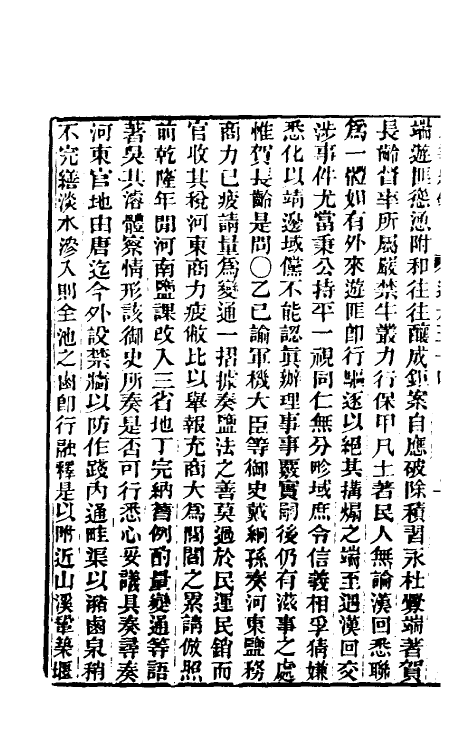 端遊匪慫慂附和往往釀成鉅案自應破除積習永杜釁端著賀
長齡督率所屬嚴禁牛叢力行保甲凡土著民人無論漢回悉聯
爲一體如有外來遊匪卽行驅逐以絕其搆煽之端至遇漢回交
涉事件尤當秉公持平一視同仁無分畛域庶令信義相孚猜嫌
悉化以靖邊域儻不能認眞辦理事事覈實嗣後仍有滋事之處
惟賀長齡是問〇乙巳諭軍機大臣等御史戴絅孫奏河東鹽務
商力已疲請量爲變通一摺據奏鹽法之善莫過於民運民銷而
官收其稅河東商力疲憊比以舉報充商大爲閭閻之累請倣照
前乾隆年閒河南鹽課改入三省地丁完納舊例酌量變通等語
著吳其濬體察情形該御史所奏是否可行悉心妥議具奏尋奏
河東官地由唐迄今外設禁牆以防作踐內通畦渠以瀦鹵泉稍
不完繕淡水滲入則全池之鹵卽行融釋是以附近山溪隄築堰